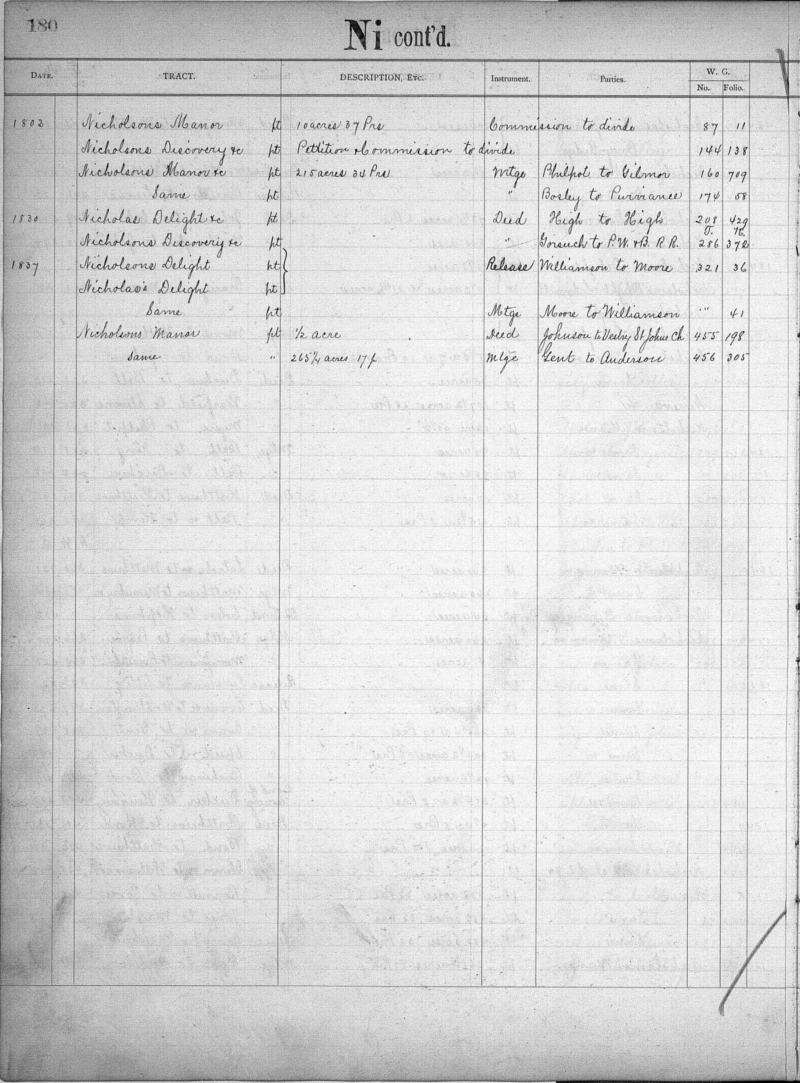 180
Ni cont'd.
DATE. TRACT. DESCRIPTION, ETC. Instrument. Parties. W. G. No. Folio.
1802 Nicholsons Manor pt 10 acres 37 Prs Commission to divide 87 11
Nicholsons Discovery &c pt Petition & Commission to divide 144 138
Nicholsons Manor &c pt 215 acres 34 Prs Mtge Philpot to Gilmor 160 709
Same pt " Bosley to Purviance 174 58
1830 Nicholas Delight &c pt Deed High to High 208 429
Nicholsons Discovery &c pt " Gorsuch to P. W. & B. R. R. 286 372
1837 Nicholsons Delight pt Release Williamson to Moore 321 36
Nicholas's Delight pt
Same pt Mtge Moore to Williamson " " 41
Nicholsons Manor pt 1/2 acre Deed Johnson to Vestry St Johns Ch 455 198
Same " 265 1/4 acres 17 p Mtge Gent to Anderson 456 305